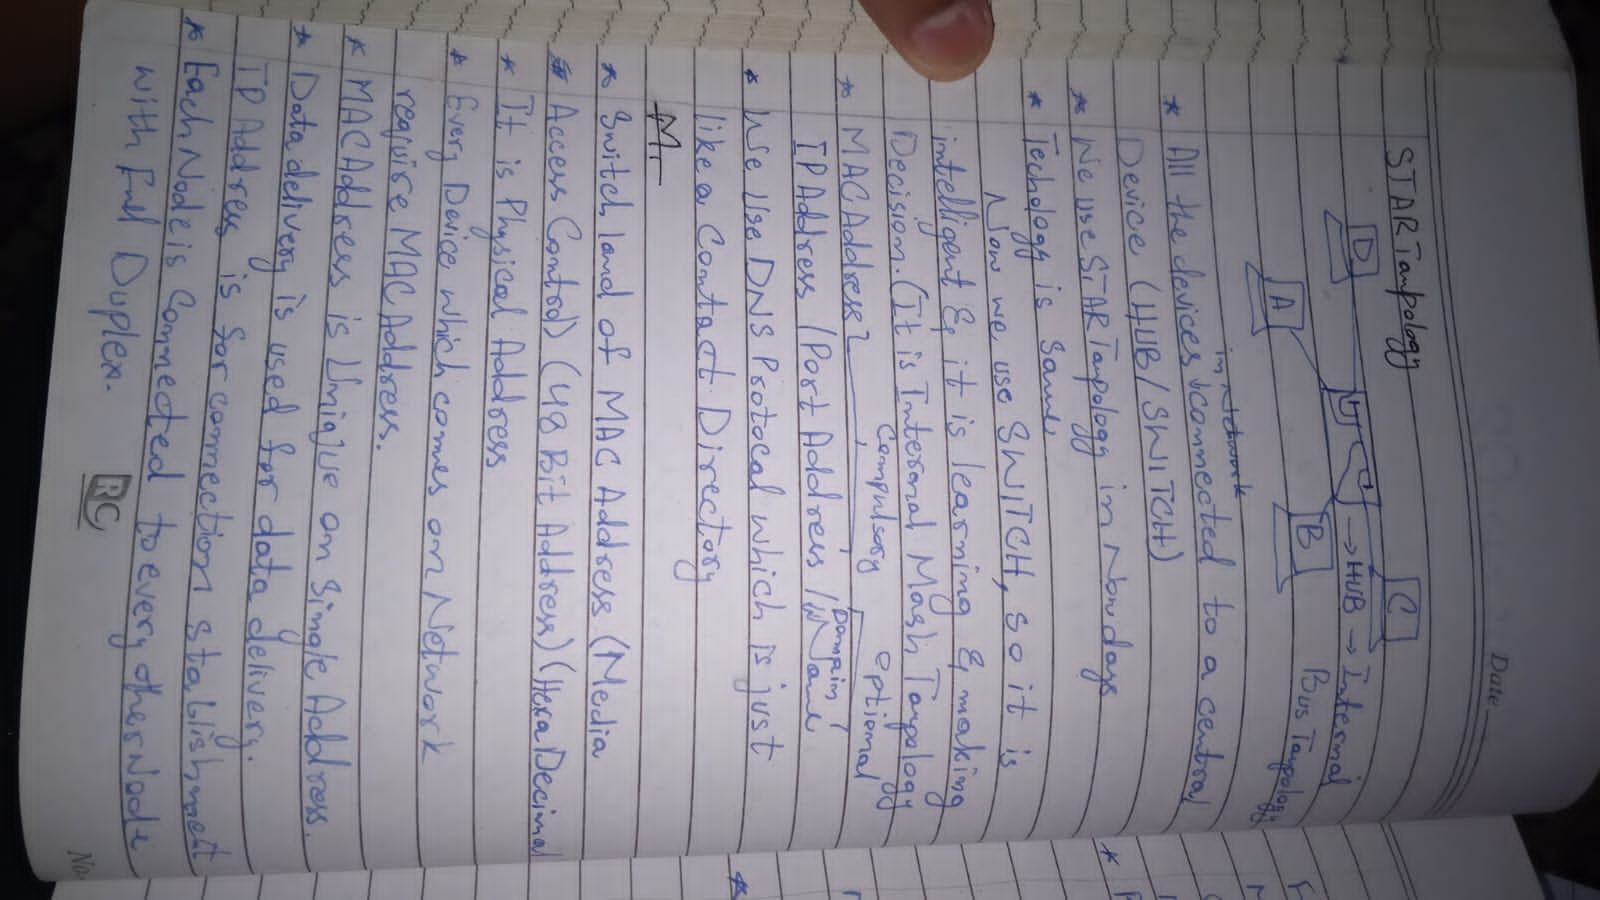 Date
STAR Tanpology
D
C
→ HUB → Internal
Bus Tanpology
A
B
in network
* All the devices connected to a central
Device (HUB/SWITCH)
* We use STAR Tanpology in Nowdays
* Techology is same,
Now we use SWITCH, so it is
intelligent & it is learning & making
Decision. (It is Internal Mash Tanpology
Compulsory optional
* MAC Address?
IP Address / Port Address / Domain Name
* We Use DNS Protocal which is just
like a Contact Directory
* Switch land of MAC Address (Media
* Access Control) (48 Bit Address) (Hexa Decimal
* It is Physical Address
* Every Device which comes on Network
require MAC Address.
* MAC Address is Unique an Single Address.
* Data delivery is used for data delivery.
IP Address is for connection stablishment
* Each Node is Connected to every other Node
with Full Duplex.
RC
No.